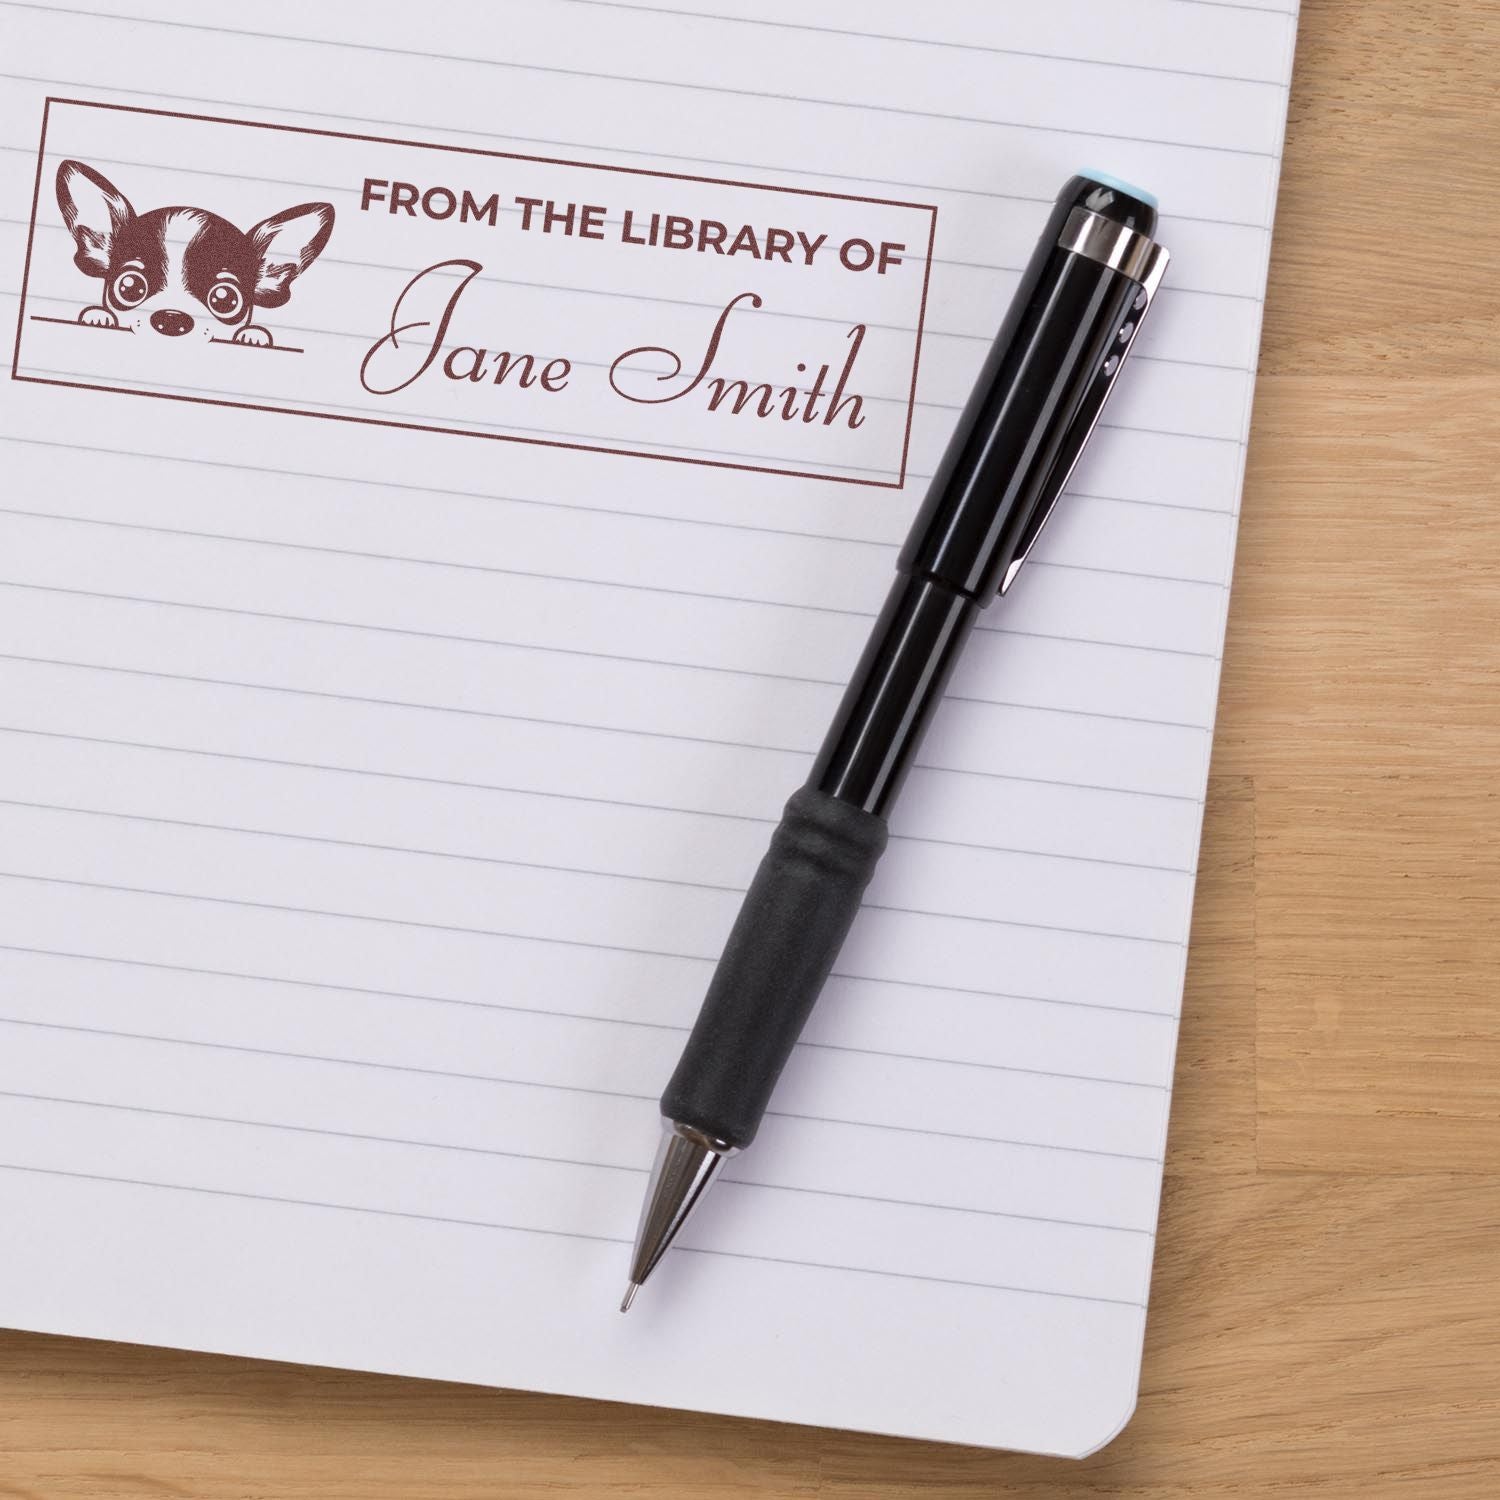 FROM THE LIBRARY OF
Jane Smith